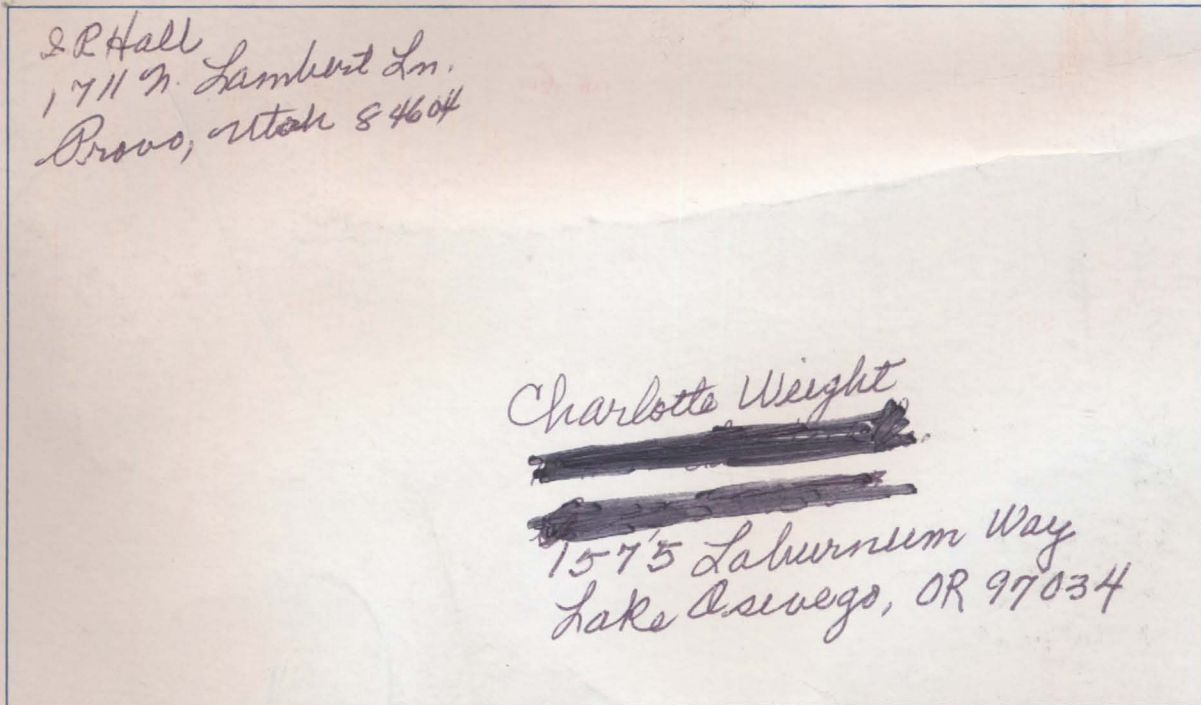 S P Hall
1711 N. Lambert Ln.
Provo, Utah 84604
Charlotte Weight
1575 Laburnum Way
Lake Osewego, OR 97034